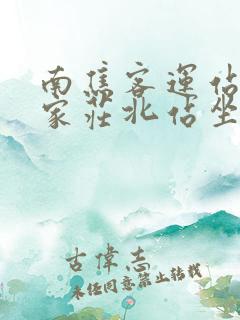 南焦客運佔
家莊北佔坐
古偉志
未经同意禁止转载